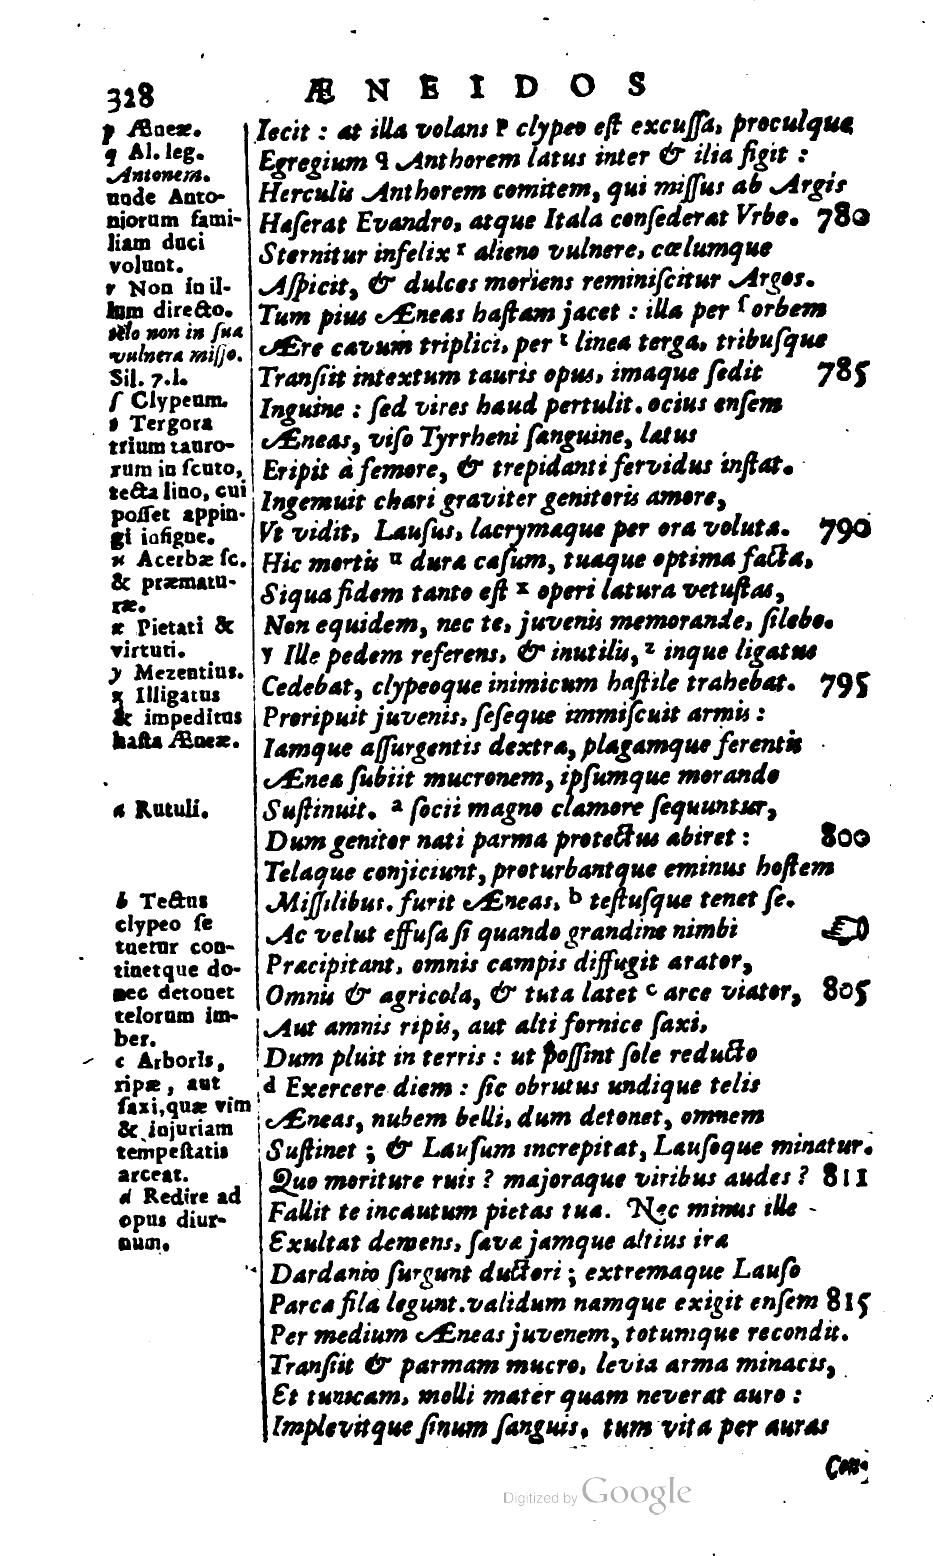 328 ÆNEIDOS
p Æneæ.
q Al. leg.
Antonem.
unde Anto-
niorum fami-
liam duci
volunt.
r Non in il-
lum directo.
velo non in sua
vulnera misso.
Sil. 7.l.
ſ Clypeum.
t Tergora
trium tauro-
rum in ſcuto,
tecta lino, cui
poſſet appin-
gi inſigne.
u Acerbæ ſc.
& præmatu-
ræ.
x Pietati &
virtuti.
y Mezentius.
z Illigatus
& impeditus
haſta Æneæ.
a Rutuli.
b Tectus
clypeo ſe
tuetur con-
tinetque do-
nec detonet
telorum im-
ber.
c Arboris,
ripæ, aut
ſaxi, quæ vim
& injuriam
tempeſtatis
arceat.
d Redire ad
opus diur-
num.
Iecit : at illa volans p clypeo eſt excuſſa, proculque
Egregium q Anthorem latus inter & ilia figit :
Herculis Anthorem comitem, qui miſſus ab Argis
Haſerat Evandro, atque Itala conſederat Vrbe. 780
Sternitur infelix r alieno vulnere, cœlumque
Aſpicit, & dulces moriens reminiſcitur Argos.
Tum pius Æneas haſtam jacet : illa per ſ orbem
Ære cavum triplici, per t linea terga, tribuſque
Tranſiit intextum tauris opus, imaque ſedit 785
Inguine : ſed vires haud pertulit. ocius enſem
Æneas, viſo Tyrrheni ſanguine, latus
Eripit à femore, & trepidanti fervidus inſtat.
Ingemuit chari graviter genitoris amore,
Vt vidit, Lauſus, lacrymaque per ora voluta. 790
Hic mortis u dura caſum, tuaque optima facta,
Siqua fidem tanto eſt x operi latura vetuſtas,
Non equidem, nec te, juvenis memorande, ſilebo.
y Ille pedem referens, & inutilis, z inque ligatus
Cedebat, clypeoque inimicum haſtile trahebat. 795
Proripuit juvenis, ſeſeque immiſcuit armis :
Iamque aſſurgentis dextra, plagamque ferentis
Ænea ſubiit mucronem, ipſumque morando
Suſtinuit. a ſocii magno clamore ſequuntur,
Dum genitor nati parma protectus abiret : 800
Telaque conjiciunt, proturbantque eminus hoſtem
Miſſilibus. furit Æneas, b tectuſque tenet ſe.
Ac velut effuſa ſi quando grandine nimbi
Præcipitant, omnis campis diffugit arator,
Omnis & agricola, & tuta latet c arce viator, 805
Aut amnis ripis, aut alti fornice ſaxi,
Dum pluit in terris : ut poſſint ſole reducto
d Exercere diem : ſic obrutus undique telis
Æneas, nubem belli, dum detonet, omnem
Suſtinet ; & Lauſum increpitat, Lauſoque minatur.
Quo moriture ruis ? majoraque viribus audes ? 811
Fallit te incautum pietas tua. Nec minus ille
Exultat demens, ſava jamque altius ira
Dardanio ſurgunt ductori ; extremaque Lauſo
Parca fila legunt. validum namque exigit enſem 815
Per medium Æneas juvenem, totumque recondit.
Tranſiit & parmam mucro, levia arma minacis,
Et tunicam, molli mater quam neverat auro :
Implevitque ſinum ſanguis, tum vita per auras
Con-
Digitized by Google